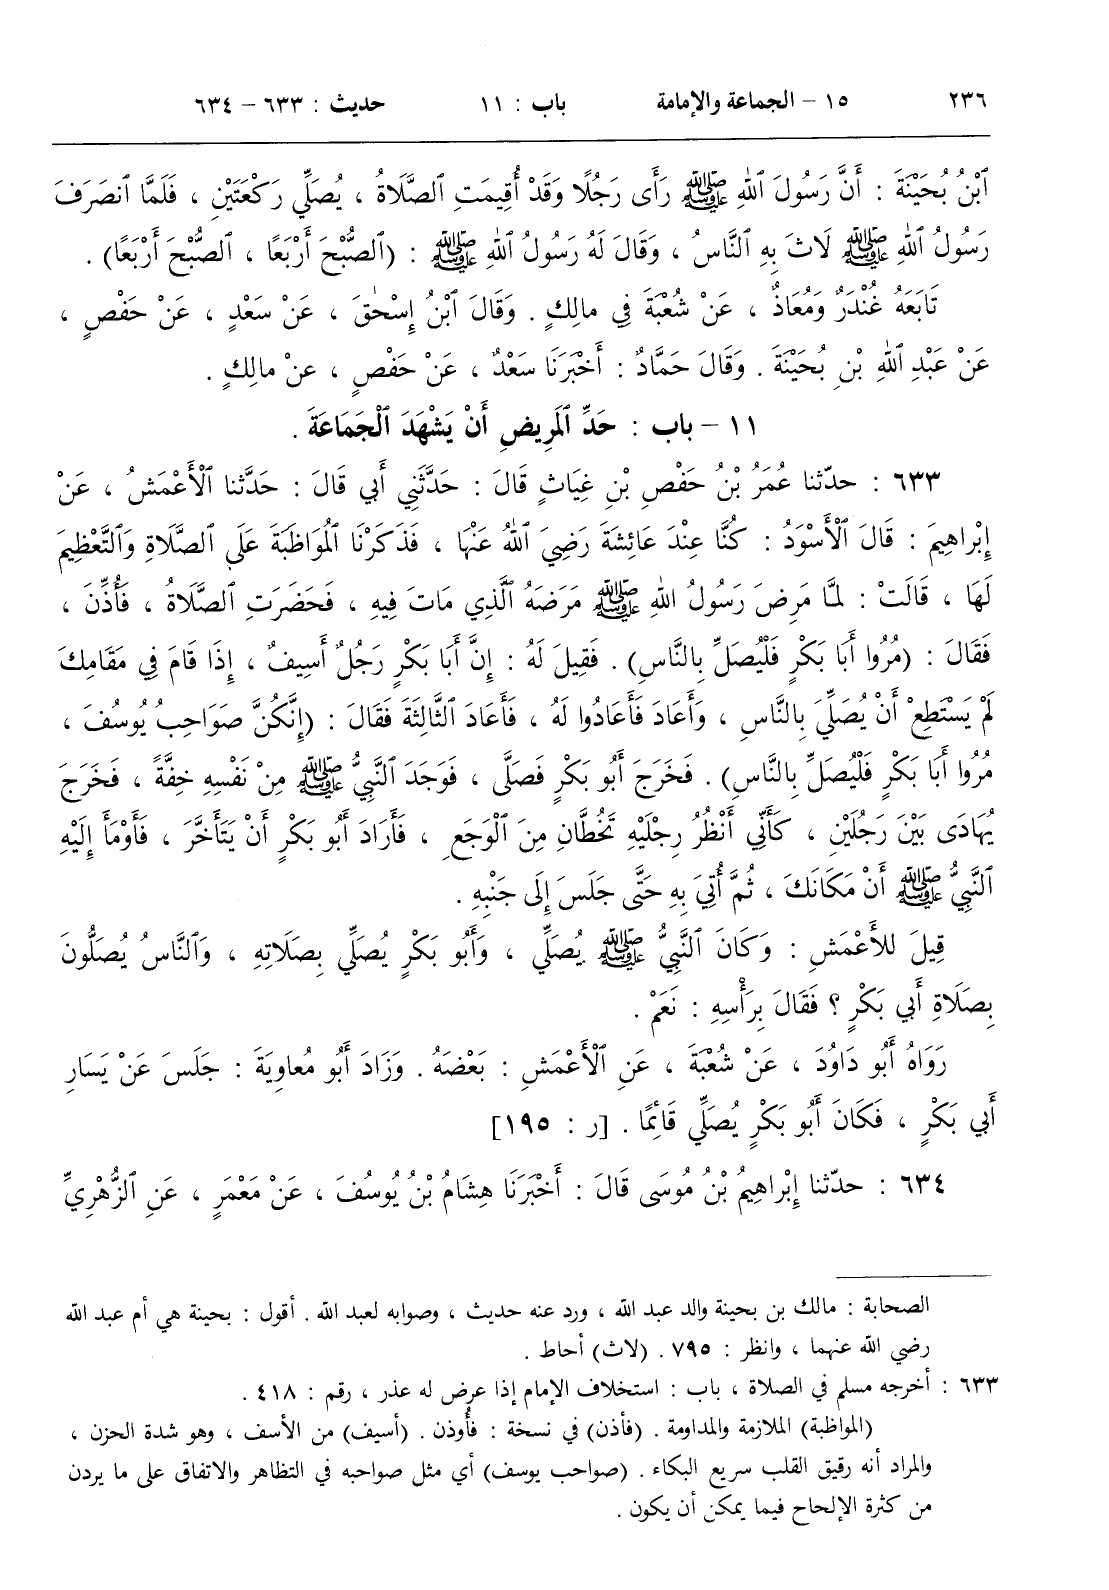 ٢٣٦ ١٥ – الجماعة والإمامة باب : ١١ حديث : ٦٣٣ – ٦٣٤
ٱبْنُ بُحَيْنَةَ : أَنَّ رَسُولَ ٱللهِ ﷺ رَأَى رَجُلًا وَقَدْ أُقِيمَتِ ٱلصَّلَاةُ ، يُصَلِّي رَكْعَتَيْنِ ، فَلَمَّا ٱنْصَرَفَ
رَسُولُ ٱللهِ ﷺ لَاثَ بِهِ ٱلنَّاسُ ، وَقَالَ لَهُ رَسُولُ ٱللهِ ﷺ : (ٱلصُّبْحَ أَرْبَعًا ، ٱلصُّبْحَ أَرْبَعًا) .
تَابَعَهُ غُنْدَرٌ وَمُعَاذٌ ، عَنْ شُعْبَةَ فِي مالِكٍ . وَقَالَ ٱبْنُ إِسْحٰقَ ، عَنْ سَعْدٍ ، عَنْ حَفْصٍ ،
عَنْ عَبْدِ ٱللهِ بْنِ بُحَيْنَةَ . وَقَالَ حَمَّادٌ : أَخْبَرَنَا سَعْدٌ ، عَنْ حَفْصٍ ، عنْ مالِكٍ .
١١ – باب : حَدِّ ٱلمَرِيضِ أَنْ يَشْهَدَ ٱلْجَمَاعَةَ .
٦٣٣ : حدّثنا عُمَرُ بْنُ حَفْصِ بْنِ غِيَاثٍ قَالَ : حَدَّثَنِي أَبِي قَالَ : حَدَّثَنا ٱلْأَعْمَشُ ، عَنْ
إِبْراهِيمَ : قَالَ ٱلْأَسْوَدُ : كُنَّا عِنْدَ عائِشَةَ رَضِيَ ٱللهُ عَنْهَا ، فَذَكَرْنَا ٱلمُوَاظَبَةَ عَلَى ٱلصَّلَاةِ وَٱلتَّعْظِيمَ
لَهَا ، قَالَتْ : لمَّا مَرِضَ رَسُولُ اللهِ ﷺ مَرَضَهُ ٱلَّذِي مَاتَ فِيهِ ، فَحَضَرَتِ ٱلصَّلَاةُ ، فَأُذِّنَ ،
فَقَالَ : (مُرُوا أَبَا بَكْرٍ فَلْيُصَلِّ بِالنَّاسِ) . فَقِيلَ لَهُ : إِنَّ أَبَا بَكْرٍ رَجُلٌ أَسِيفٌ ، إِذَا قَامَ فِي مَقَامِكَ
لَمْ يَسْتَطِعْ أَنْ يُصَلِّيَ بِالنَّاسِ ، وَأَعَادَ فَأَعَادُوا لَهُ ، فَأَعَادَ ٱلثَّالِثَةَ فَقَالَ : (إِنَّكُنَّ صَوَاحِبُ يُوسُفَ ،
مُرُوا أَبَا بَكْرٍ فَلْيُصَلِّ بِالنَّاسِ) . فَخَرَجَ أَبُو بَكْرٍ فَصَلَّى ، فَوَجَدَ ٱلنَّبِيُّ ﷺ مِنْ نَفْسِهِ خِفَّةً ، فَخَرَجَ
يُهَادَى بَيْنَ رَجُلَيْنِ ، كَأَنِّي أَنْظُرُ رِجْلَيْهِ تَخُطَّانِ مِنَ ٱلْوَجَعِ ، فَأَرَادَ أَبُو بَكْرٍ أَنْ يَتَأَخَّرَ ، فَأَوْمَأَ إِلَيْهِ
ٱلنَّبِيُّ ﷺ أَنْ مَكَانَكَ ، ثُمَّ أُتِيَ بِهِ حَتَّى جَلَسَ إِلَى جَنْبِهِ .
قِيلَ للأَعْمَشِ : وَكَانَ ٱلنَّبِيُّ ﷺ يُصَلِّي ، وَأَبُو بَكْرٍ يُصَلِّي بِصَلَاتِهِ ، وَٱلنَّاسُ يُصَلُّونَ
بِصَلَاةِ أَبِي بَكْرٍ ؟ فَقَالَ بِرَأْسِهِ : نَعَمْ .
رَوَاهُ أَبُو دَاوُدَ ، عَنْ شُعْبَةَ ، عَنِ ٱلْأَعْمَشِ : بَعْضَهُ . وَزَادَ أَبُو مُعاوِيَةَ : جَلَسَ عَنْ يَسَارِ
أَبِي بَكْرٍ ، فَكَانَ أَبُو بَكْرٍ يُصَلِّي قَائِمًا . [ر : ١٩٥]
٦٣٤ : حدّثنا إِبْراهِيمُ بْنُ مُوسَى قَالَ : أَخْبَرَنَا هِشَامُ بْنُ يُوسُفَ ، عَنْ مَعْمَرٍ ، عَنِ ٱلزُّهْرِيِّ
الصحابة : مالك بن بحينة والد عبد الله ، ورد عنه حديث ، وصوابه لعبد الله . أقول : بحينة هي أم عبد الله
رضي الله عنهما ، وانظر : ٧٩٥ . (لاث) أحاط .
٦٣٣ : أخرجه مسلم في الصلاة ، باب : استخلاف الإمام إذا عرض له عذر ، رقم : ٤١٨ .
(المواظبة) الملازمة والمداومة . (فأذن) في نسخة : فأُوذن . (أسيف) من الأسف ، وهو شدة الحزن ،
والمراد أنه رقيق القلب سريع البكاء . (صواحب يوسف) أي مثل صواحبه في التظاهر والاتفاق على ما يردن
من كثرة الإلحاح فيما يمكن أن يكون .